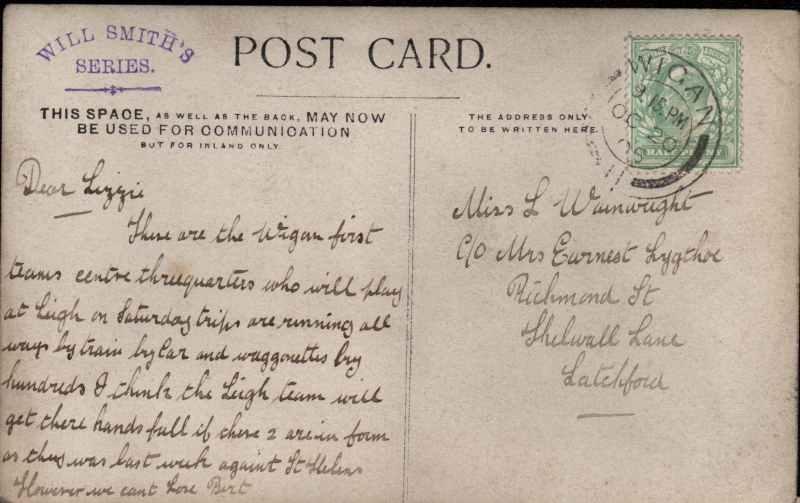 WILL SMITH'S
SERIES.
POST CARD.
THIS SPACE, AS WELL AS THE BACK, MAY NOW
BE USED FOR COMMUNICATION
BUT FOR INLAND ONLY.
THE ADDRESS ONLY
TO BE WRITTEN HERE.
WIGAN
9 15 PM
OC 20
HALF PENNY
Dear Lizzie
These are the Wigan first
teams centre threequarters who will play
at Leigh on Saturday trips are running all
ways by train by Car and waggonettes by
hundreds I think the Leigh team will
get there hands full if these 2 are in form
as they was last week against St Helens
However we cant Lose Bert
Miss L Wainwright
C/O Mrs Earnest Lygthoe
Richmond St
Thelwall Lane
Latchford